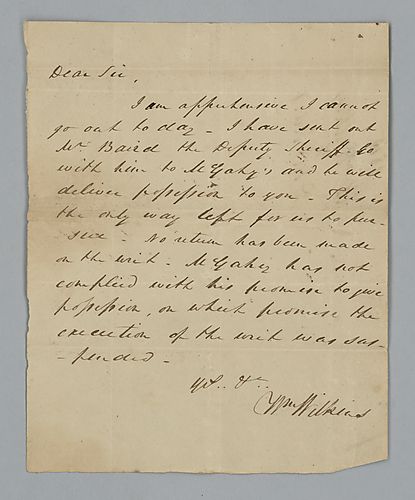 Dear Sir,
I am apprehensive I cannot
go out to day - I have sent out
Mr Baird the Deputy Sheriff. Go
with him to McGahy's and he will
deliver possession to you - This is
the only way left for us to pur-
sue - No return has been made
on the writ - McGahey has not
complied with his promise to give
possession, on which promise the
execution of the writ was sus-
-pended -
Yrs. &c.
Wm Wilkins